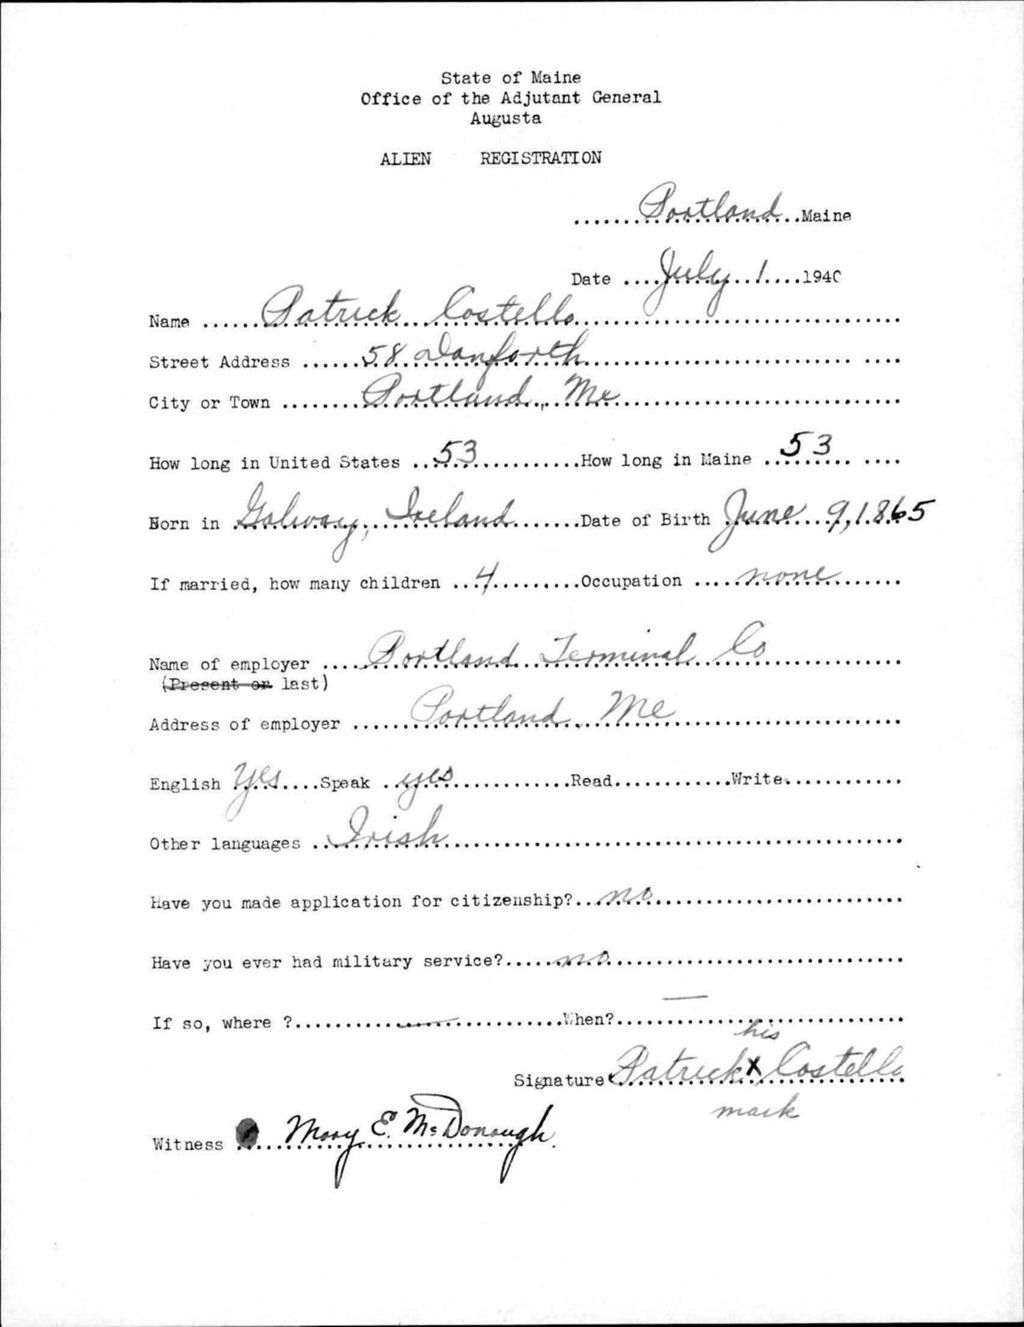 State of Maine
Office of the Adjutant General
Augusta
ALIEN REGISTRATION
.......Portland...Maine
Date ....July 1....1940
Name ......Patrick Costello..............................
Street Address ......58 Danforth..............................
City or Town ........Portland, Me..............................
How long in United States ..53............How long in Maine ..53.... ....
Born in Galway, Ireland.......Date of Birth June 9, 1865
If married, how many children ..4..........Occupation .....none......
Name of employer ....Portland Terminal Co..............
(Present or last)
Address of employer ......Portland, Me........................
English Yes....Speak ..yes............Read............Write............
Other languages ..Irish........................................
Have you made application for citizenship?...no........................
Have you ever had military service?.....no..............................
If so, where ?..........—..........When?..........—..........
his
Signature Patrick x Costello
mark
Witness Mary E. McDonough